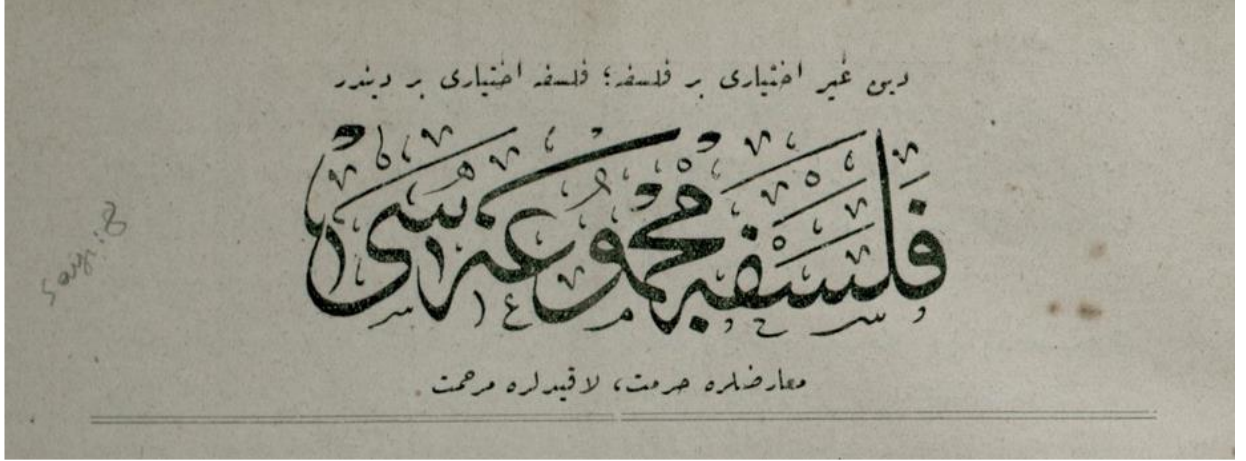 دين غير اختيارى بر فلسفه؛ فلسفه اختيارى بر ديندر
فلسفه مجموعه سى
معارضلره حرمت، لاقيدلره مرحمت
Sayı: 8